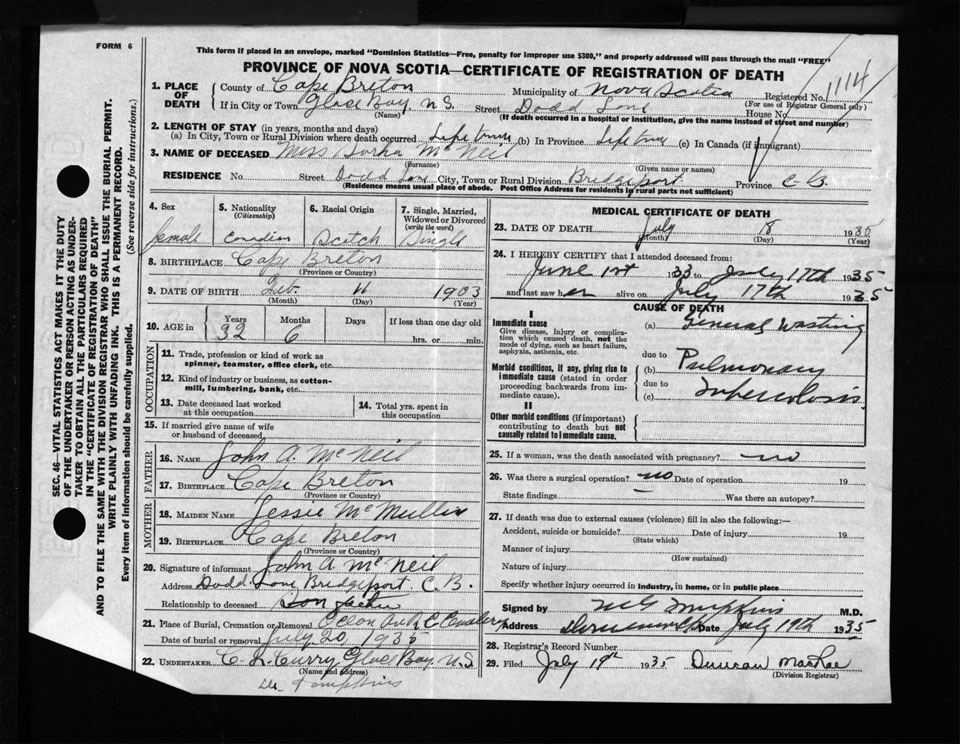 FORM 6
This form if placed in an envelope, marked "Dominion Statistics—Free, penalty for improper use $300," and properly addressed will pass through the mail "FREE"
PROVINCE OF NOVA SCOTIA—CERTIFICATE OF REGISTRATION OF DEATH
SEC. 46—VITAL STATISTICS ACT MAKES IT THE DUTY
OF THE UNDERTAKER OR PERSON ACTING AS UNDER-
TAKER TO OBTAIN ALL THE PARTICULARS REQUIRED
IN THE "CERTIFICATE OF REGISTRATION OF DEATH"
AND TO FILE THE SAME WITH THE DIVISION REGISTRAR WHO SHALL ISSUE THE BURIAL PERMIT.
WRITE PLAINLY WITH UNFADING INK. THIS IS A PERMANENT RECORD.
Every item of information should be carefully supplied. (See reverse side for instructions.)
1. PLACE OF DEATH
County of Cape Breton Municipality of Nova Scotia Registered No. 1114
(For use of Registrar General only)
If in City or Town Glace Bay, N.S. Street Dodd Lane House No.
(Name) (If death occurred in a hospital or institution, give the name instead of street and number)
2. LENGTH OF STAY (in years, months and days)
(a) In City, Town or Rural Division where death occurred Life time (b) In Province Life time (c) In Canada (if immigrant)
3. NAME OF DECEASED Miss McNeil
(Surname) (Given name or names)
RESIDENCE No. Street Dodd Lane City, Town or Rural Division Bridgeport Province C.B.
(Residence means usual place of abode. Post Office Address for residents in rural parts not sufficient)
4. Sex 5. Nationality (Citizenship) 6. Racial Origin 7. Single, Married, Widowed or Divorced (write the word)
female Scotch Single
8. BIRTHPLACE Cape Breton
(Province or Country)
9. DATE OF BIRTH Feb. 11 1903
(Month) (Day) (Year)
10. AGE in Years Months Days If less than one day old
32 6 hrs. or min.
OCCUPATION
11. Trade, profession or kind of work as
spinner, teamster, office clerk, etc.
12. Kind of industry or business, as cotton-
mill, lumbering, bank, etc.
13. Date deceased last worked at this occupation
14. Total yrs. spent in this occupation
15. If married give name of wife
or husband of deceased
FATHER
16. Name John A. McNeil
17. Birthplace Cape Breton
(Province or Country)
MOTHER
18. Maiden Name Jessie McMullin
19. Birthplace Cape Breton
(Province or Country)
20. Signature of informant John A. McNeil
Address Dodd Lane Bridgeport. C.B.
Relationship to deceased
21. Place of Burial, Cremation or Removal
Date of burial or removal July 20, 1935
22. Undertaker C. L. Curry, Glace Bay, N.S.
(Name and address)
Dr. Tompkins
MEDICAL CERTIFICATE OF DEATH
23. DATE OF DEATH July 18 1935
(Month) (Day) (Year)
24. I HEREBY CERTIFY that I attended deceased from:
June 1st 1933 to July 17th 1935
and last saw her alive on July 17th 1935
CAUSE OF DEATH
I
Immediate cause
Give disease, injury or complica-
tion which caused death, not the
mode of dying, such as heart failure,
asphyxia, asthenia, etc.
(a) General Wasting
due to
Morbid conditions, if any, giving rise to
immediate cause (stated in order
proceeding backwards from im-
mediate cause).
(b) Pulmonary
due to
(c) Tuberculosis.
II
Other morbid conditions (if important)
contributing to death but not
causally related to immediate cause.
25. If a woman, was the death associated with pregnancy? no
26. Was there a surgical operation? no Date of operation 19
State findings Was there an autopsy?
27. If death was due to external causes (violence) fill in also the following:—
Accident, suicide or homicide? Date of injury 19
(State which)
Manner of injury
(How sustained)
Nature of injury
Specify whether injury occurred in industry, in home, or in public place
Signed by M G Tompkins M.D.
Address Date July 19th 1935
28. Registrar's Record Number
29. Filed July 19th 1935 Duncan MacRae
(Division Registrar)